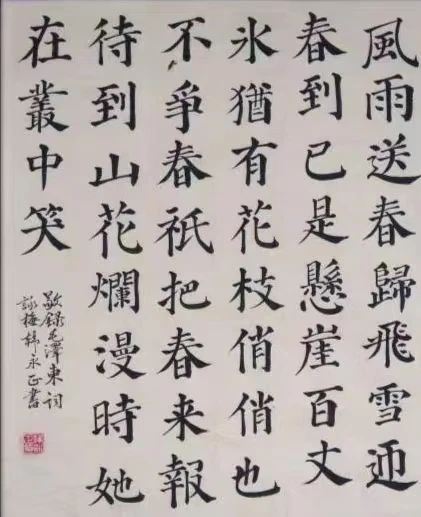 風雨送春歸飛雪迎
春到已是懸崖百丈
氷猶有花枝俏俏也
不爭春祇把春来報
待到山花爛漫時她
在叢中笑
敬録毛澤東词
詠梅韓永正書